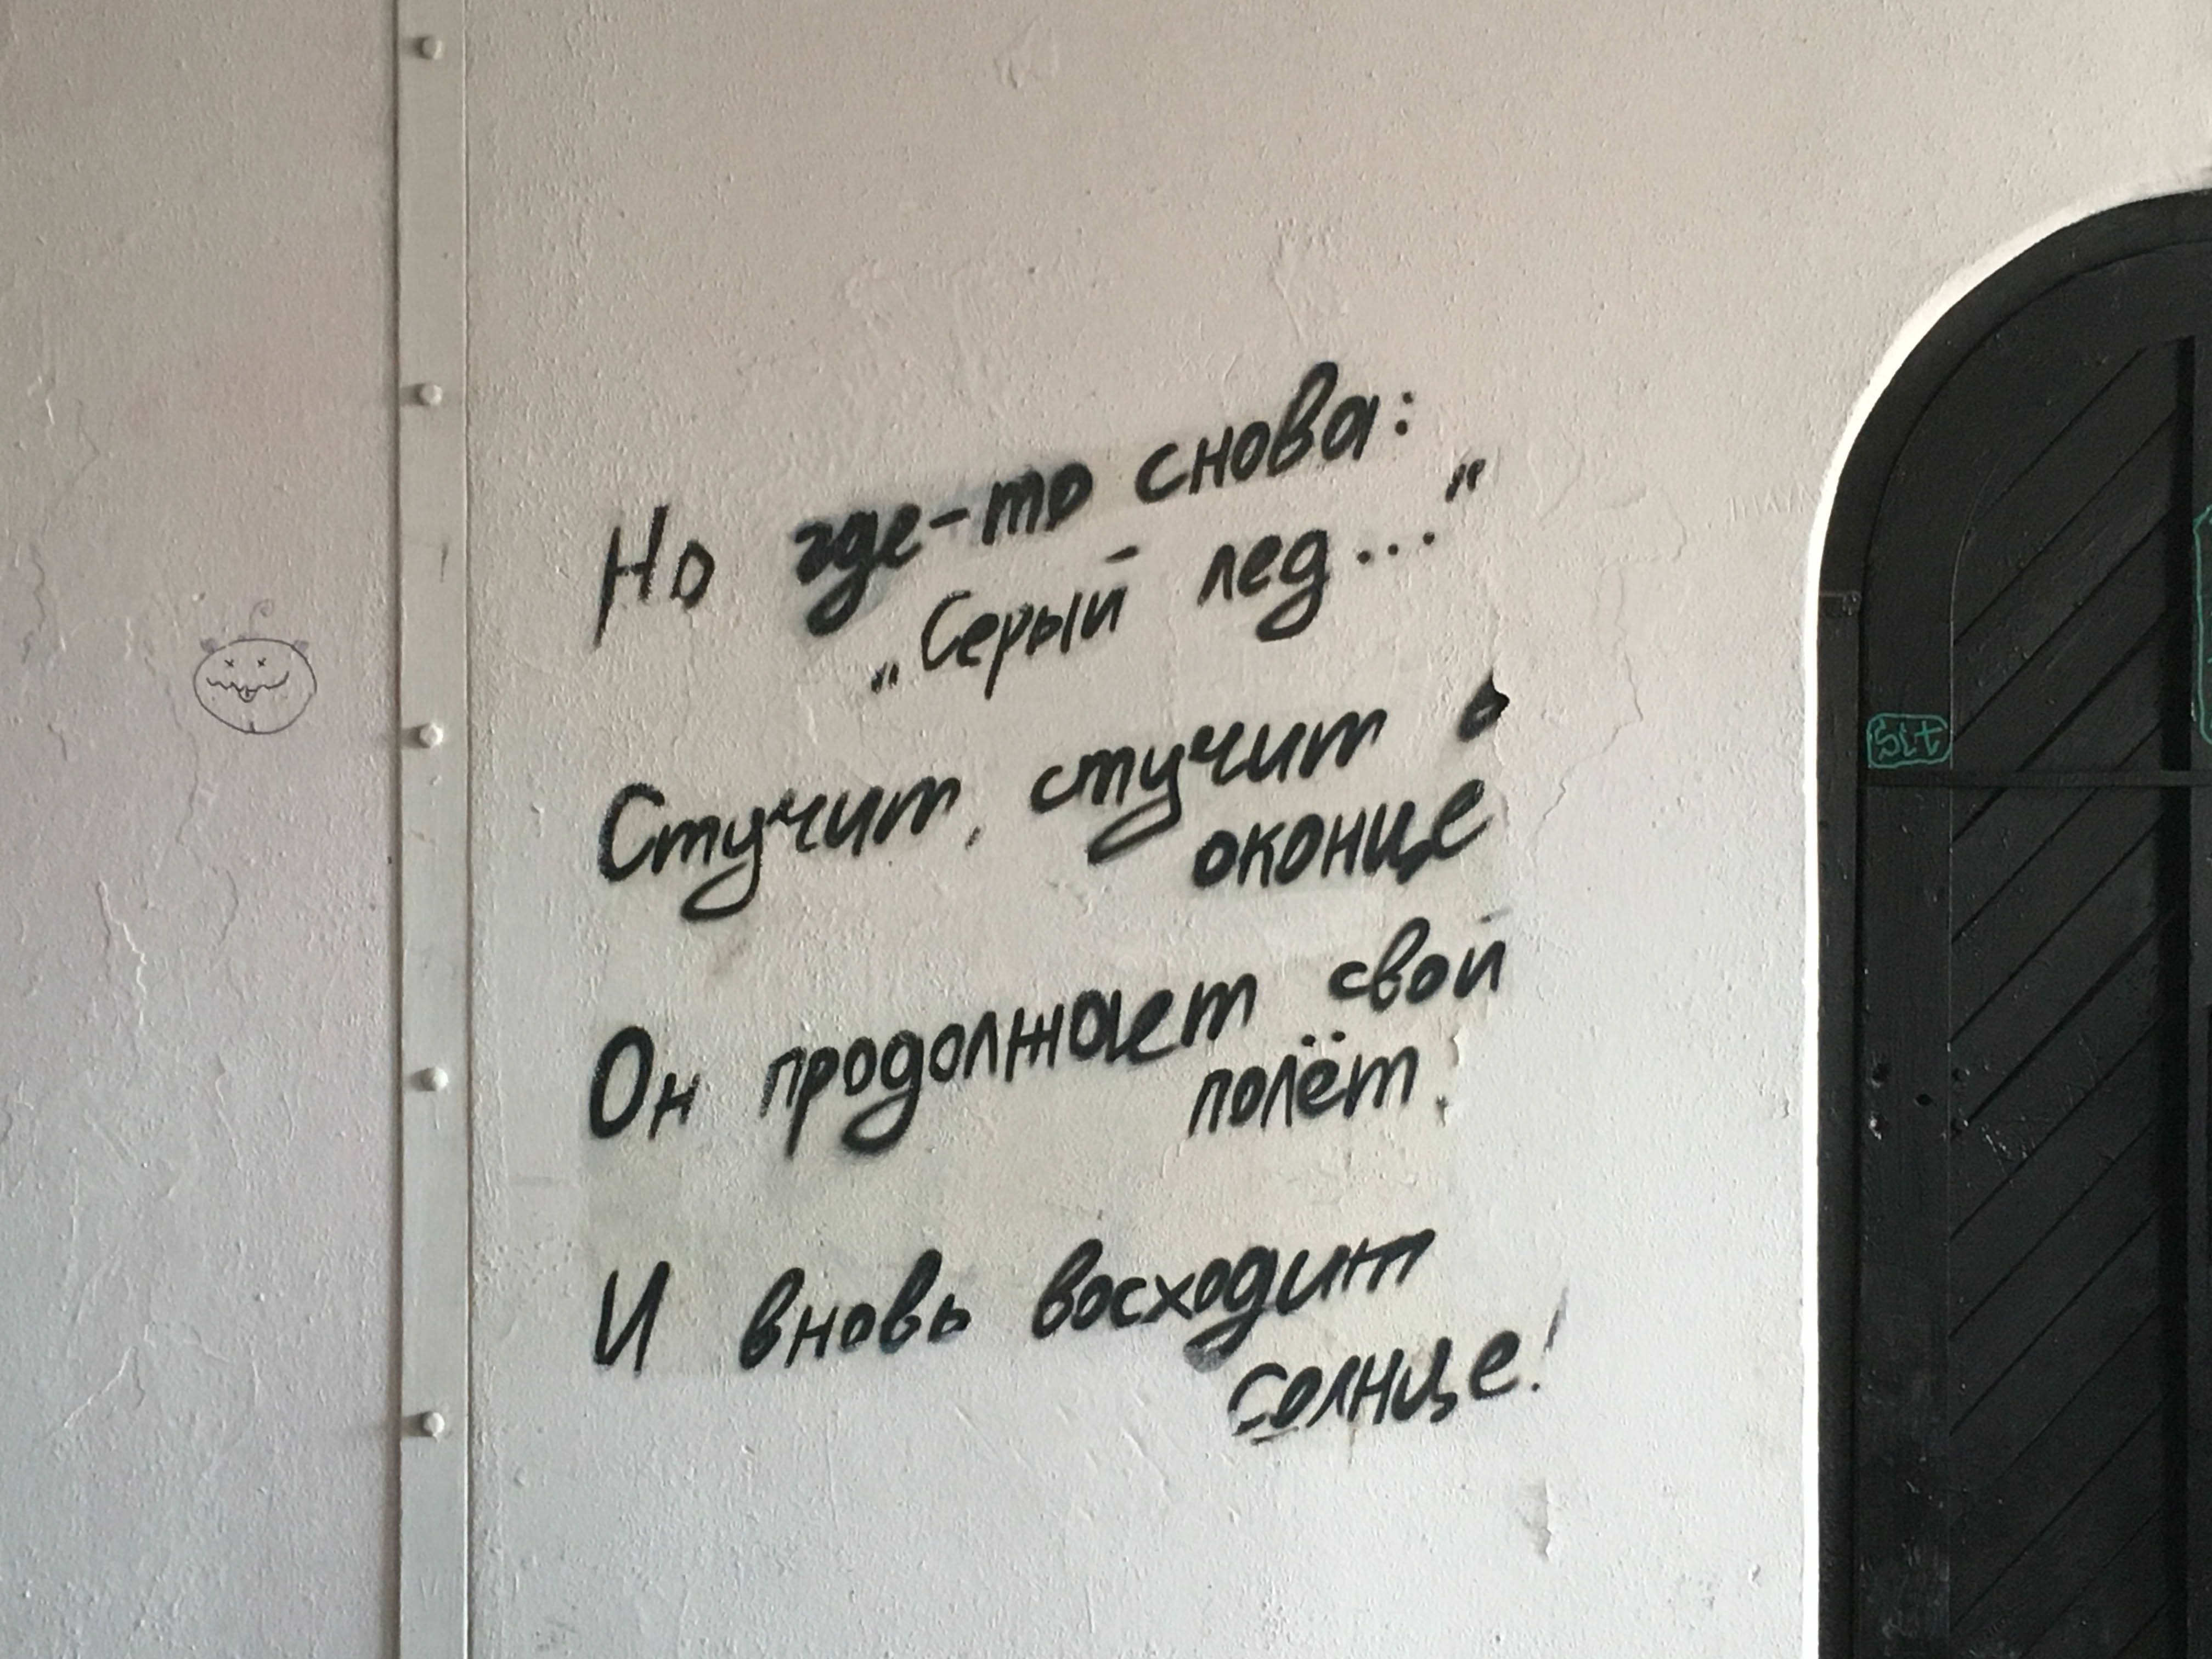 Но где-то снова:
„Серый лед..."
Стучит, стучит в
оконце
Он продолжает свой
полёт.
И вновь восходит
солнце!